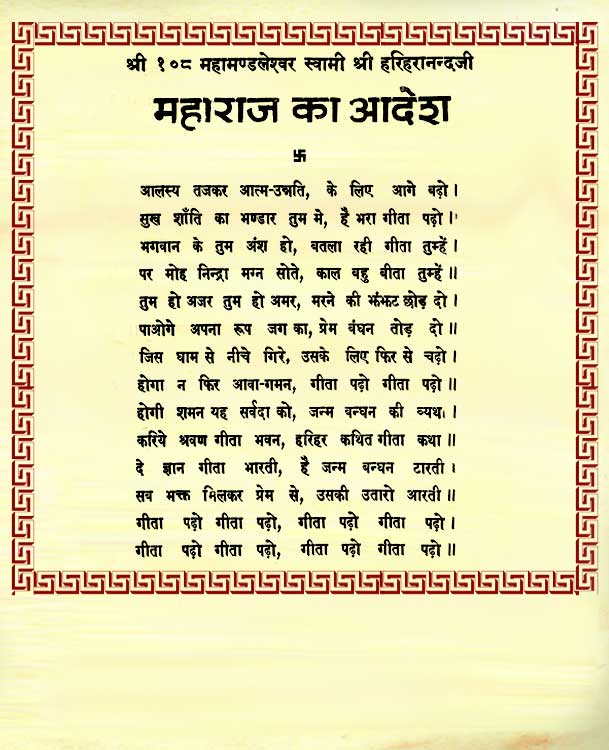 श्री १०८ महामण्डलेश्वर स्वामी श्री हरिहरानन्दजी
महाराज का आदेश
卐
आलस्य तजकर आत्म-उन्नति, के लिए आगे बढ़ो ।
सुख शाँति का भण्डार तुम मे, है भरा गीता पढ़ो ।'
भगवान के तुम अंश हो, बतला रही गीता तुम्हें ।
पर मोह निन्द्रा मग्न सोते, काल बहु बीता तुम्हें ॥
तुम हो अजर तुम हो अमर, मरने की झंझट छोड़ दो ।
पाओगे अपना रूप जग का, प्रेम बंधन तोड़ दो ॥
जिस धाम से नीचे गिरे, उसके लिए फिर से चढ़ो ।
होगा न फिर आवा-गमन, गीता पढ़ो गीता पढ़ो ॥
होगी शमन यह सर्वदा को, जन्म बन्धन की व्यथा ।
करिये श्रवण गीता भवन, हरिहर कथित गीता कथा ॥
दे ज्ञान गीता भारती, है जन्म बन्धन टारती ।
सब भक्त मिलकर प्रेम से, उसकी उतारो आरती ॥
गीता पढ़ो गीता पढ़ो, गीता पढ़ो गीता पढ़ो ।
गीता पढ़ो गीता पढ़ो, गीता पढ़ो गीता पढ़ो ॥